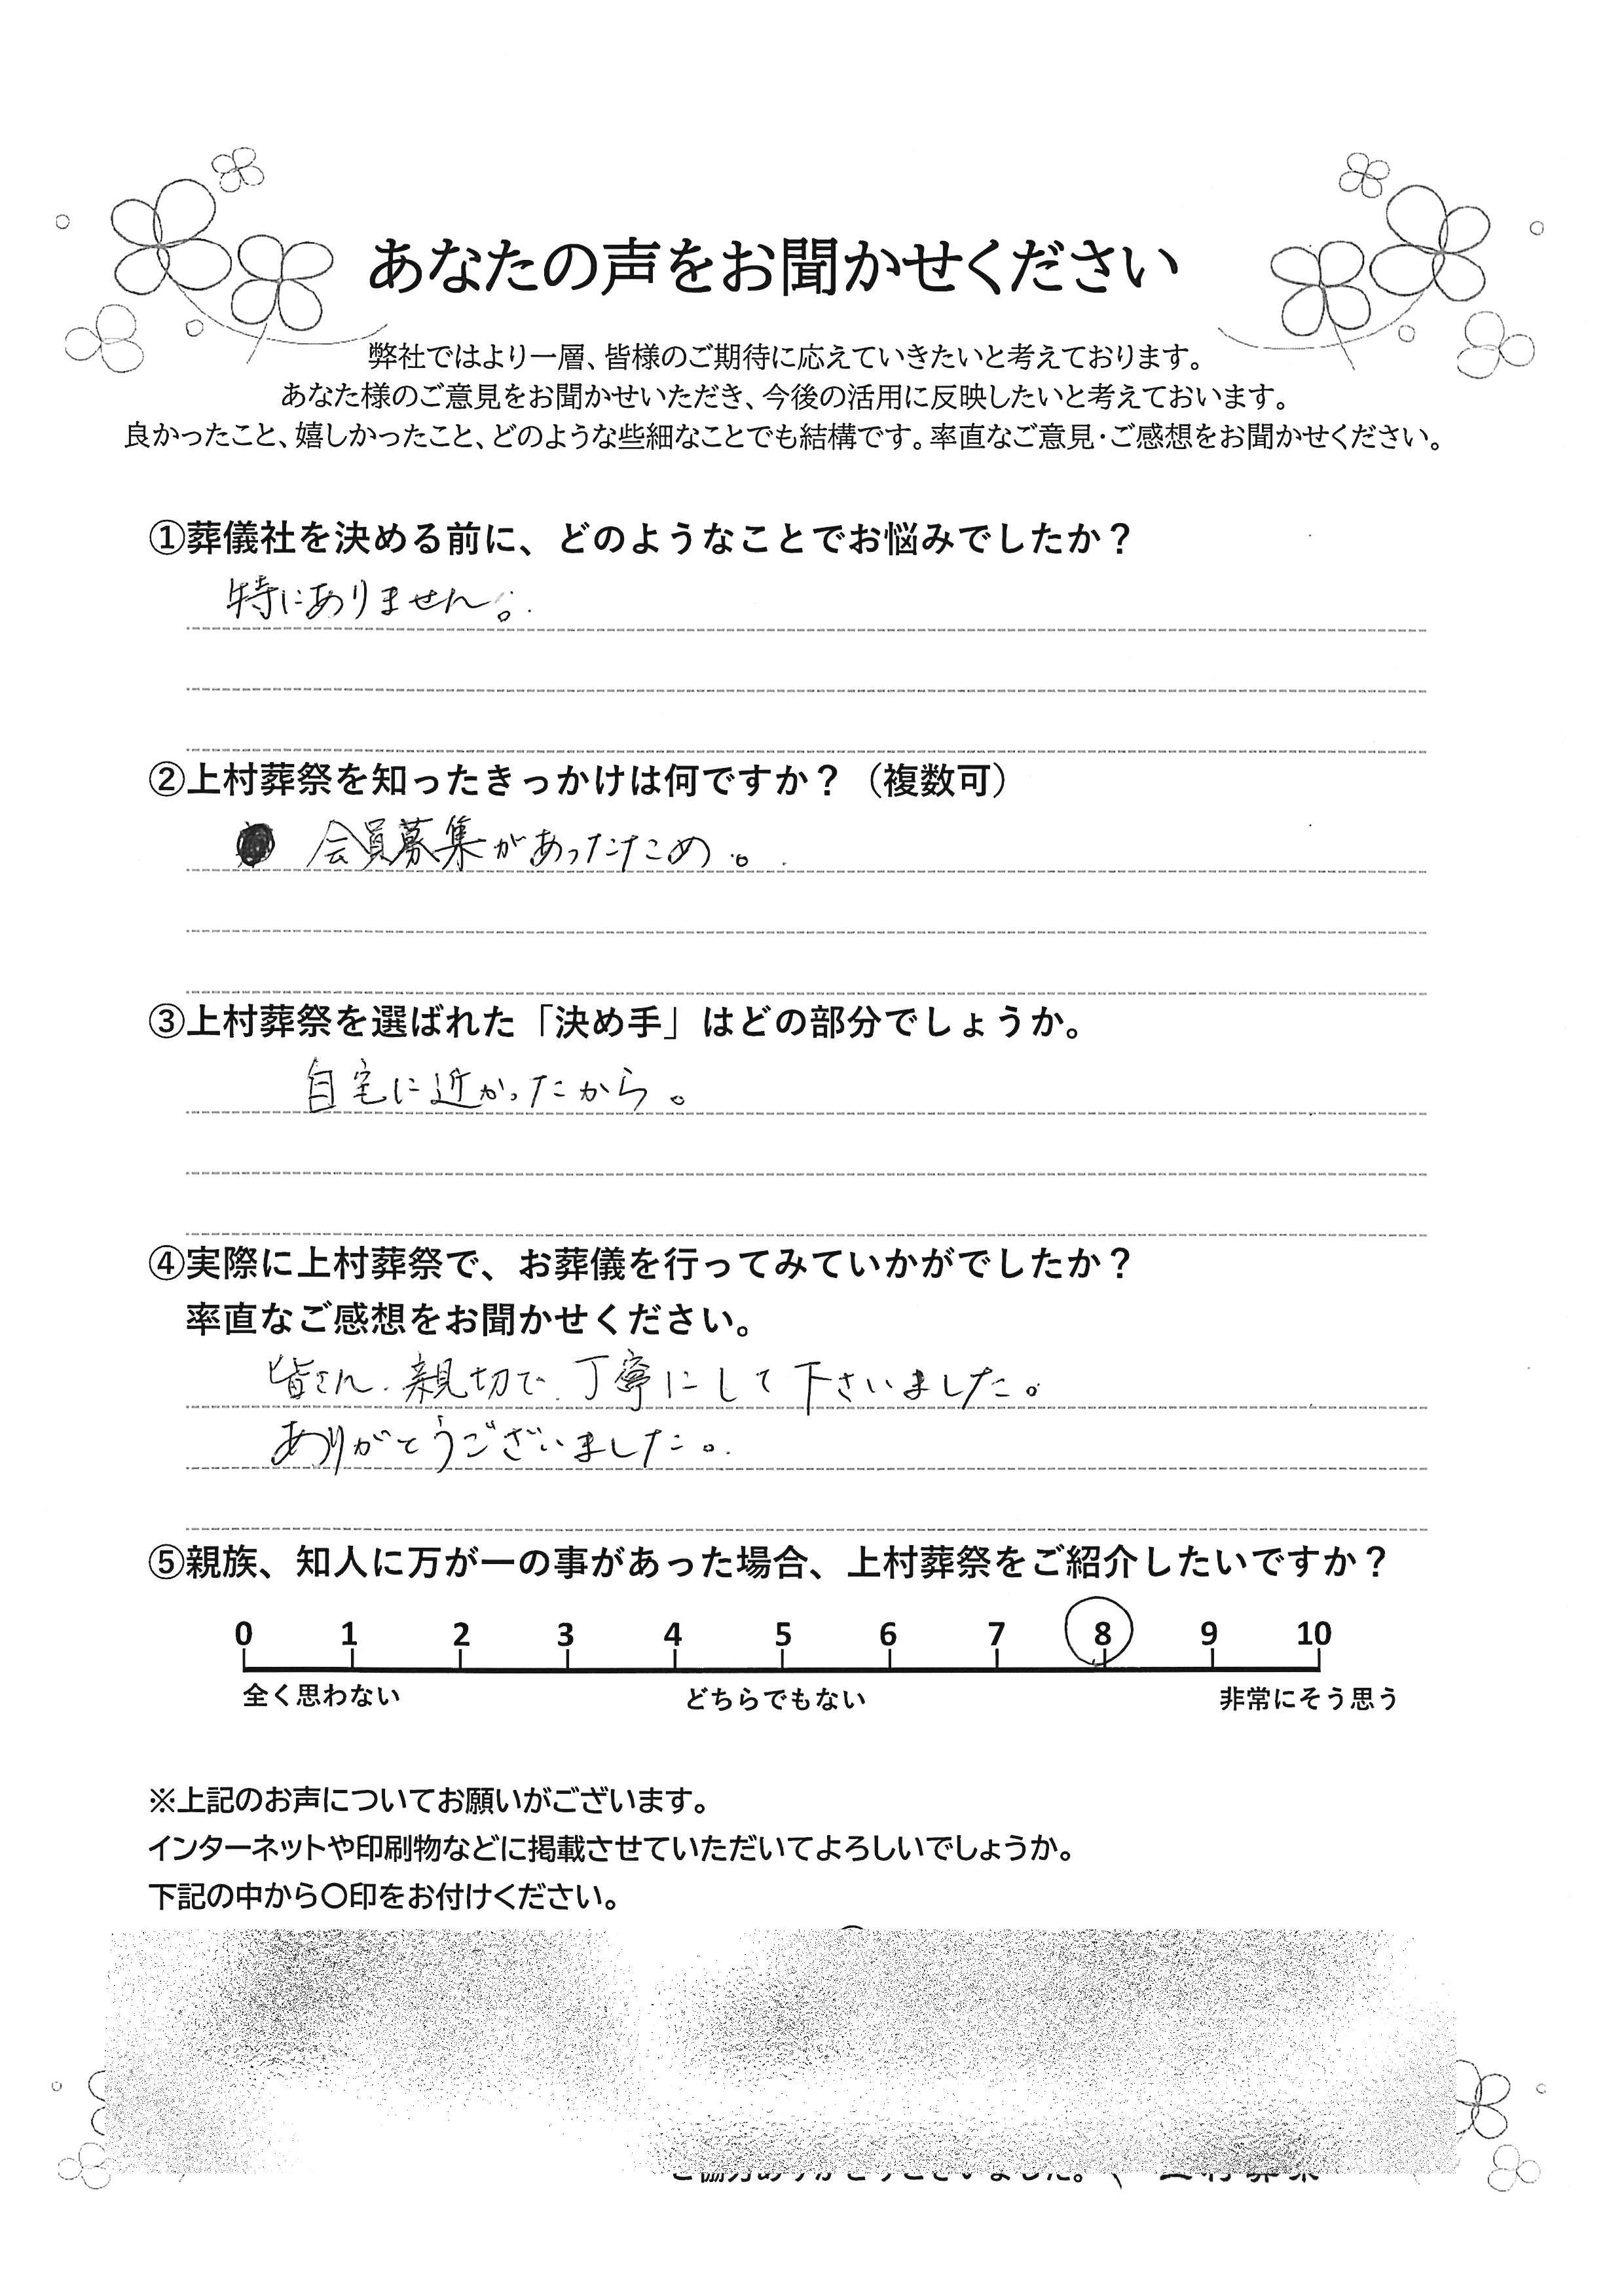 あなたの声をお聞かせください
弊社ではより一層、皆様のご期待に応えていきたいと考えております。
あなた様のご意見をお聞かせいただき、今後の活用に反映したいと考えておいます。
良かったこと、嬉しかったこと、どのような些細なことでも結構です。率直なご意見・ご感想をお聞かせください。
①葬儀社を決める前に、どのようなことでお悩みでしたか？
特にありません。
②上村葬祭を知ったきっかけは何ですか？（複数可）
会員募集があったため。
③上村葬祭を選ばれた「決め手」はどの部分でしょうか。
自宅に近かったから。
④実際に上村葬祭で、お葬儀を行ってみていかがでしたか？
率直なご感想をお聞かせください。
皆さん、親切で、丁寧にして下さいました。
ありがとうございました。
⑤親族、知人に万が一の事があった場合、上村葬祭をご紹介したいですか？
0 1 2 3 4 5 6 7 8 9 10
全く思わない どちらでもない 非常にそう思う
※上記のお声についてお願いがございます。
インターネットや印刷物などに掲載させていただいてよろしいでしょうか。
下記の中から〇印をお付けください。